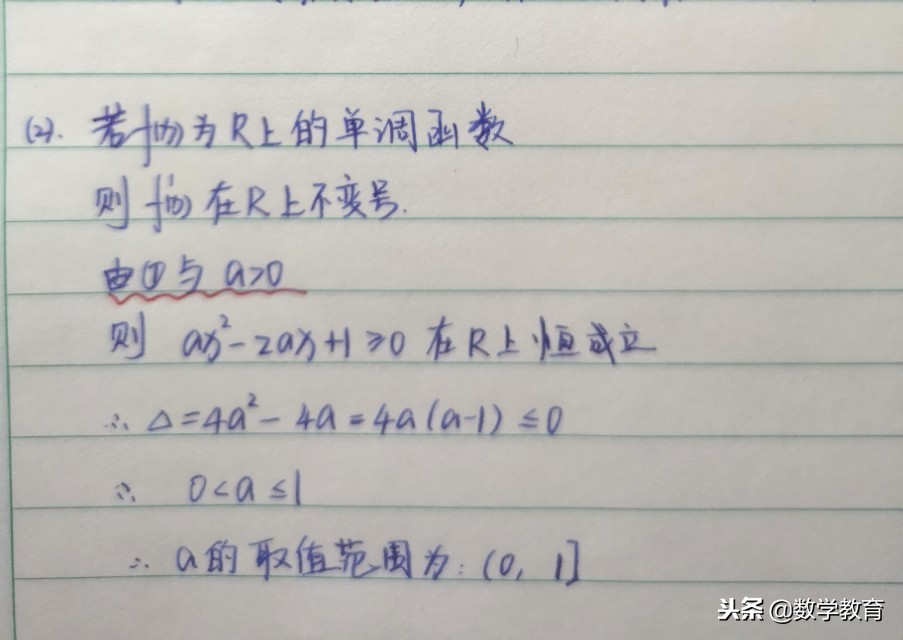 (2). 若f(x)为R上的单调函数
则f'(x)在R上不变号.
由①与 a>0
则 ax²-2ax+1≥0 在R上恒成立
∴ △=4a²-4a=4a(a-1)≤0
∴ 0<a≤1
∴ a的取值范围为:(0, 1]
头条 @数学教育